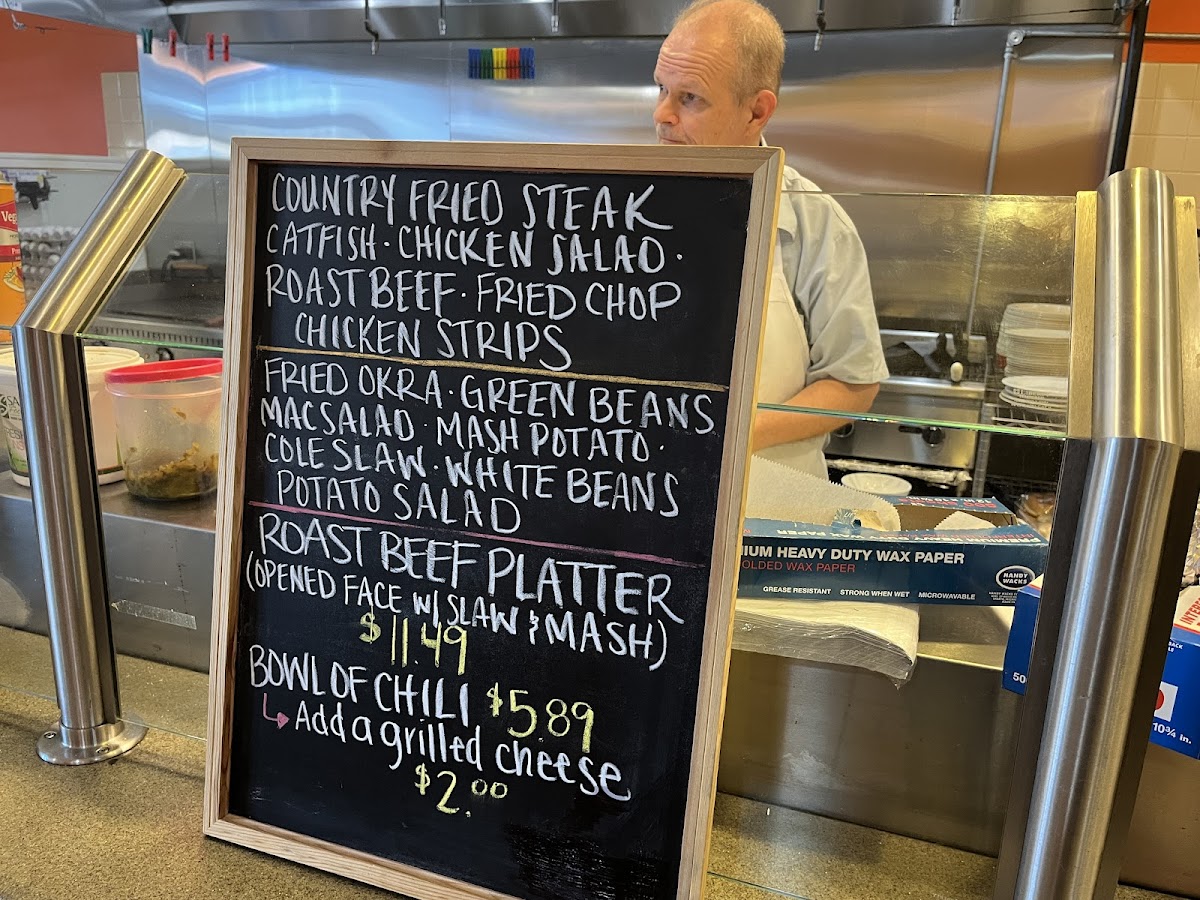 COUNTRY FRIED STEAK
CATFISH · CHICKEN SALAD ·
ROAST BEEF · FRIED CHOP
CHICKEN STRIPS
FRIED OKRA · GREEN BEANS
MAC SALAD · MASH POTATO ·
COLE SLAW · WHITE BEANS
POTATO SALAD
ROAST BEEF PLATTER
(OPENED FACE W/ SLAW & MASH)
$11.49
BOWL OF CHILI $5.89
Add a grilled cheese
$2.00
HEAVY DUTY WAX PAPER
WAX PAPER
GREASE RESISTANT STRONG WHEN WET MICROWAVABLE
HANDY
WACKS
10¾ in.